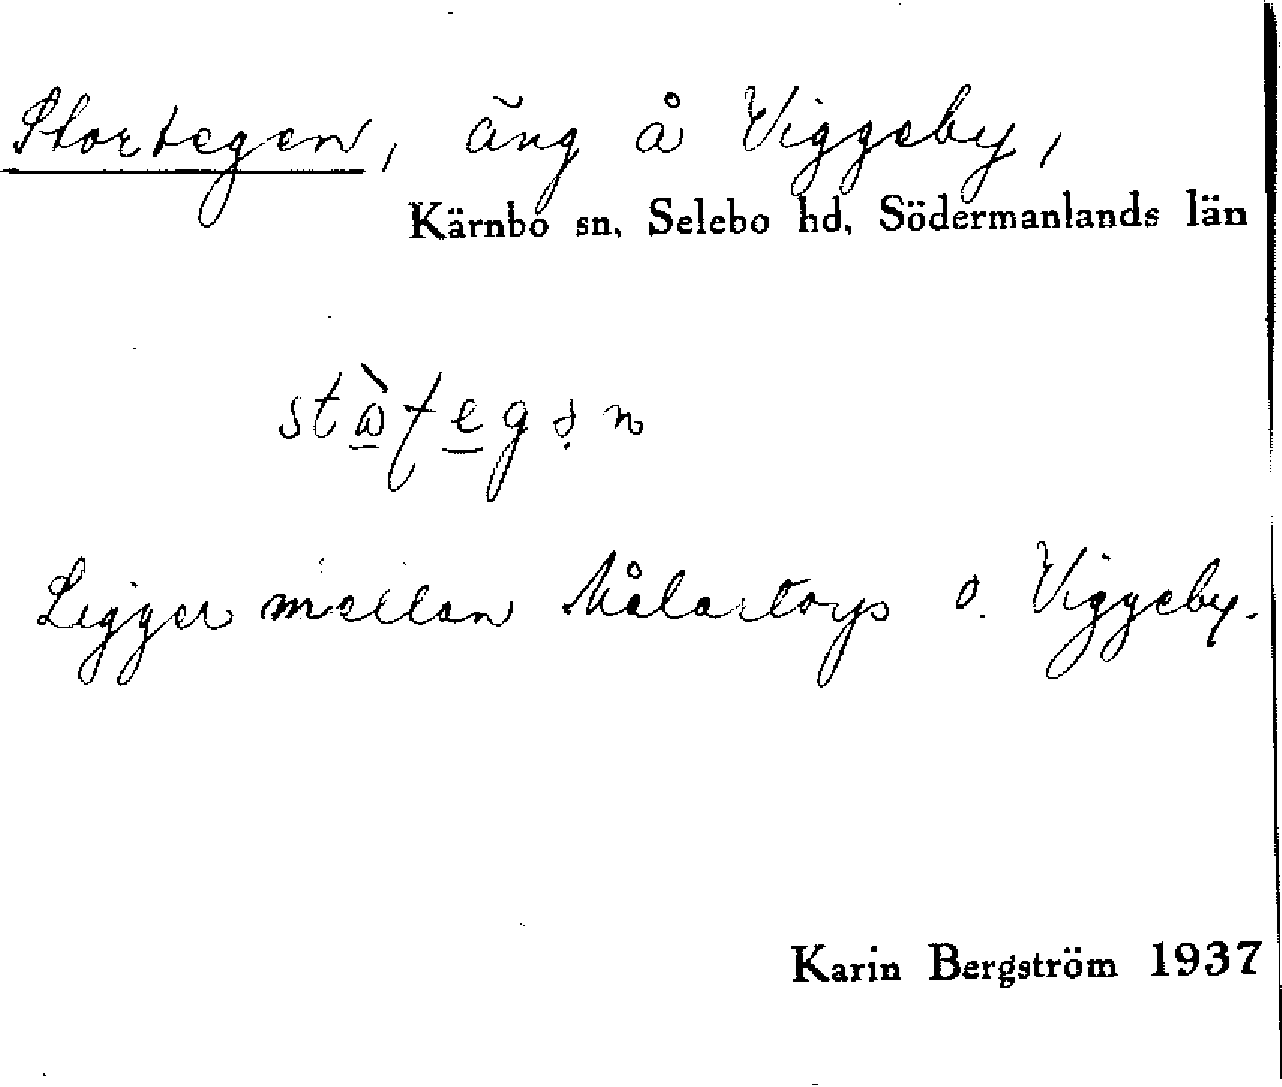 Stortegen, äng å Viggeby,
Kärnbo sn, Selebo hd, Södermanlands län
Ligger mellan o. Viggeby.
Karin Bergström 1937